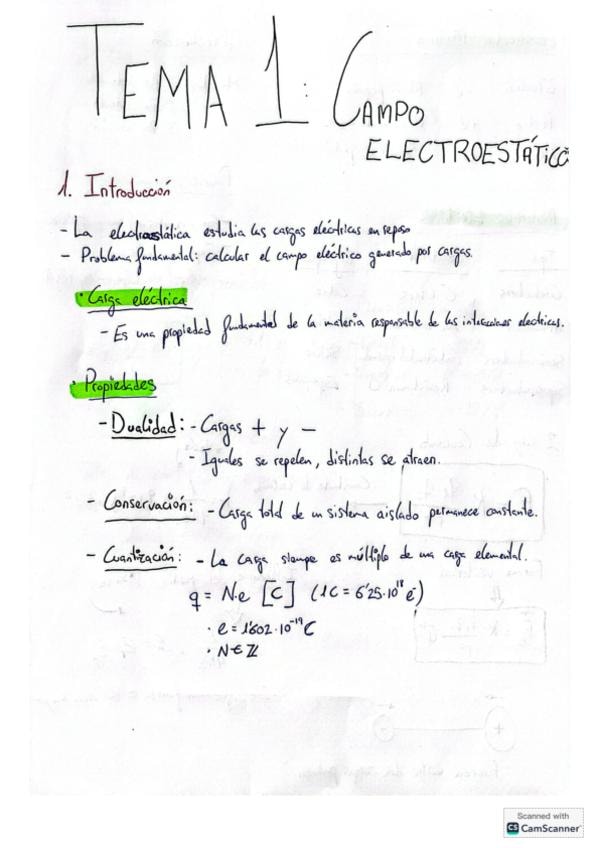 TEMA 1: CAMPO
ELECTROESTÁTICO
1. Introducción
- La electroestática estudia las cargas eléctricas en reposo
- Problema fundamental: calcular el campo eléctrico generado por cargas.
· Carga eléctrica
- Es una propiedad fundamental de la materia responsable de las interacciones electricas.
· Propiedades
- Dualidad: - Cargas + y -
- Iguales se repelen, distintas se atraen.
- Conservación: - Carga total de un sistema aislado permanece constante.
- Cuantización: - La carga siempre es múltiplo de una carga elemental.
q = N·e [C] (1C = 6'25·10¹⁸ e⁻)
· e = 1'602·10⁻¹⁹ C
· N ∈ ℤ
Scanned with
CS CamScanner